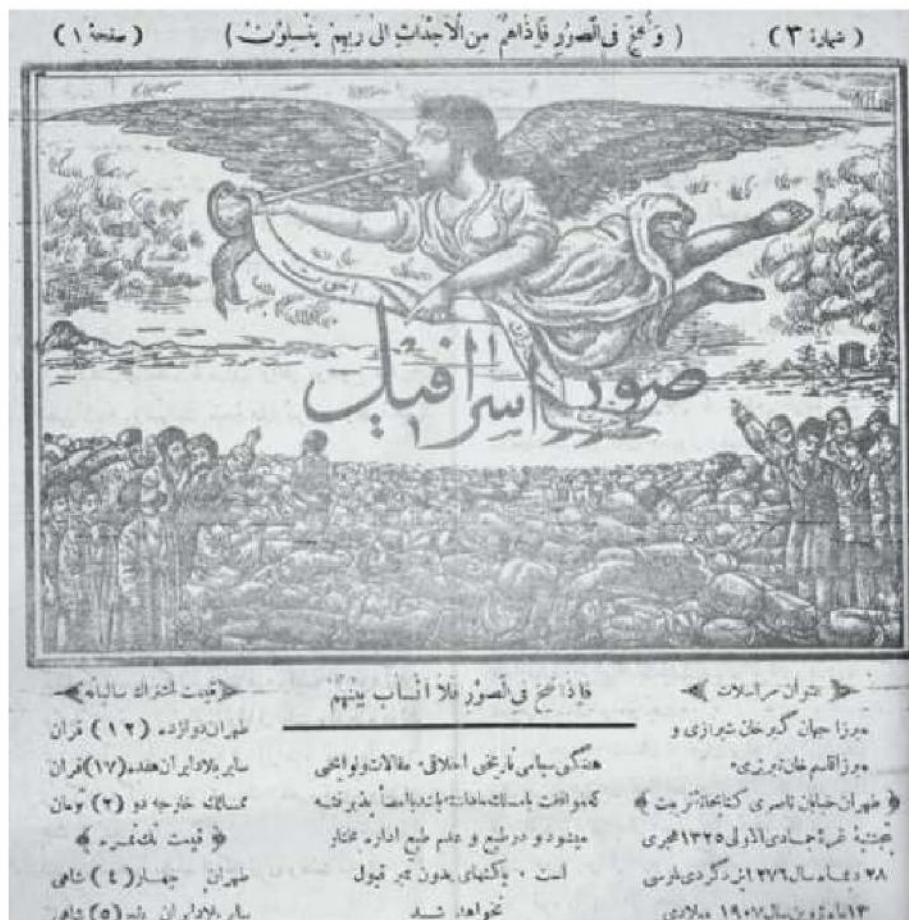 ( شمارهٔ ۳ ) ( وَ نُفِخَ فِی الصُّوْرِ فَاِذَاهُمْ مِنَ الْاَجْدَاثِ اِلیٰ رَبِّهِمْ یَنْسِلُوْنَ ) ( صفحهٔ ۱ )
صور اسرافیل
عنوان مراسلات
میرزا جهان گیر خان شیرازی و
میرزا قاسم خان تبریزی
طهران خیابان ناصری کتابخانهٔ تربیت
پنجشنبهٔ غرهٔ جمادی الاولی ۱۳۲۵ هجری
۲۸ دیماه سال ۱۲۷۶ یزدگردی پارسی
۱۳ ژون سال ۱۹۰۷ میلادی
فَاِذَا نُفِخَ فِی الصُّوْرِ فَلَا انْسابَ بَیْنَهُمْ
هفتگی سیاسی تاریخی اخلاقی مقالات و لوایحی
که موافقت با مسلک ما داشته باشد با امضا پذیرفته
میشود و در طبع و عدم طبع اداره مختار
است ۰ پاکتهای بدون تمبر قبول
نخواهد شد
قیمت اشتراک سالیانه
طهران دوازده (۱۲) قران
سایر بلاد ایران هفده (۱۷) قران
ممالک خارجه دو (۲) تومان
قیمت تک نمره
طهران چهار (۴) شاهی
سایر بلاد ایران پنج (۵) شاهی